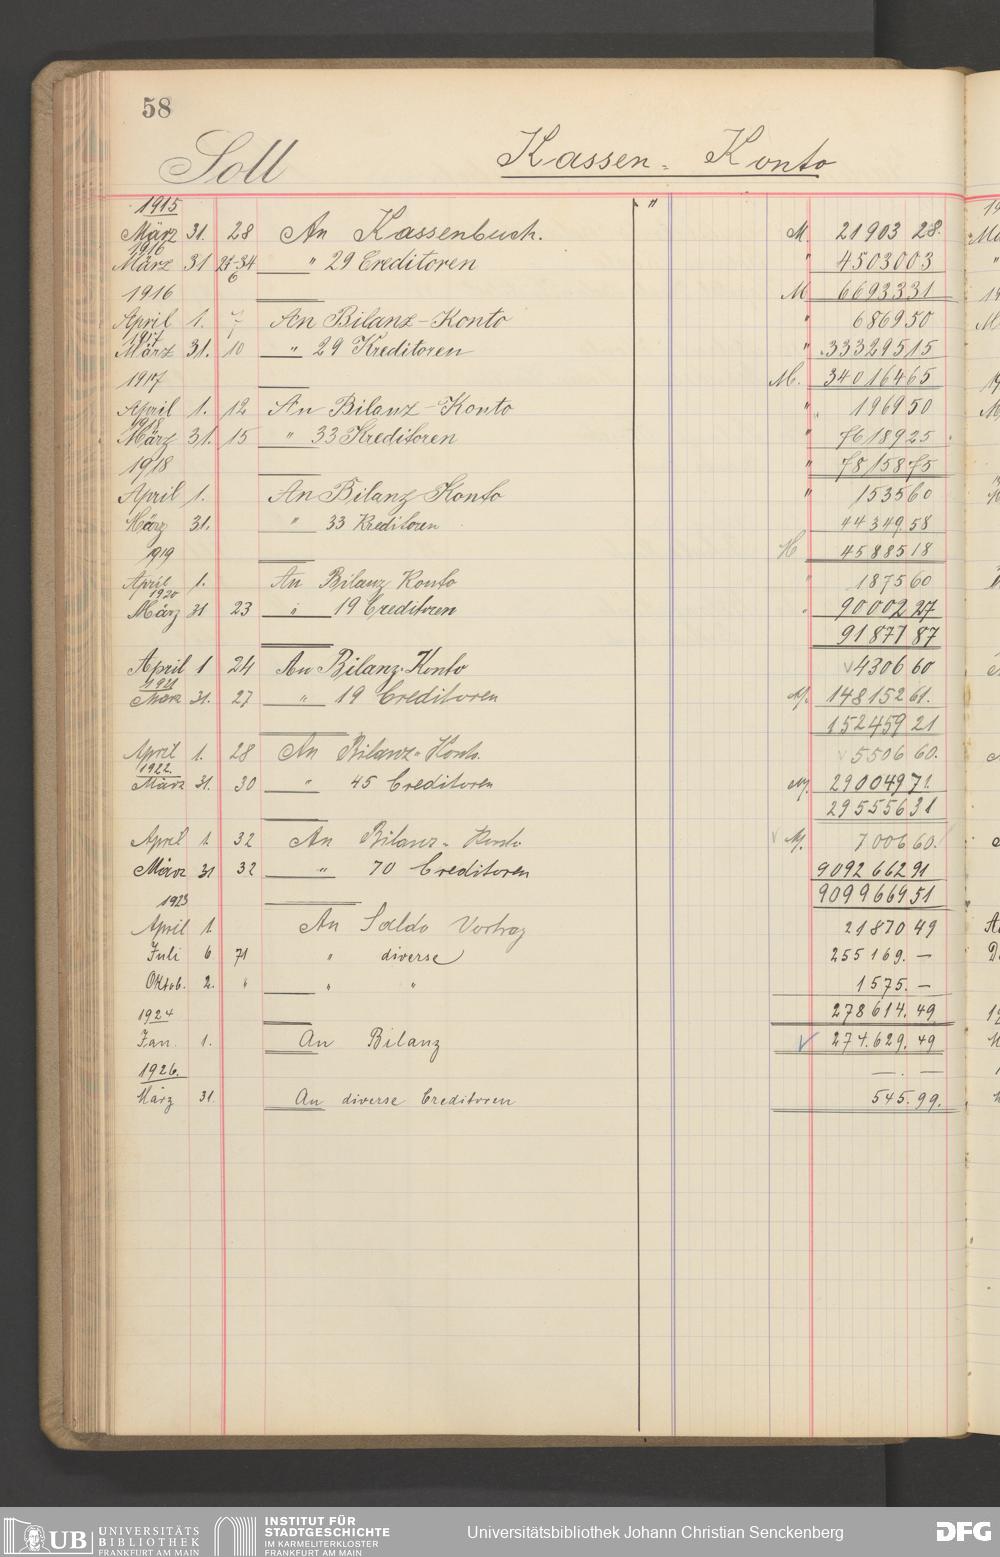 58
Soll Kassen-Konto
1915 "
März 31. 28 An Kassenbuch. M. 21903 28.
1916
März 31 27-34 " 29 Creditoren " 45030 03
6
1916 M 66933 31
April 1. 7 An Bilanz-Konto " 6869 50
1917
März 31. 10 " 29 Kreditoren " 333295 15
1917 M. 340164 65
April 1. 12 An Bilanz-Konto " 1969 50
1918
März 31. 15 " 33 Kreditoren " 76189 25
1918 " 78158 75
April 1. An Bilanz Konto " 1535 60
März 31. " 33 Kreditoren 44349.58
1919 M 45885 18
April 1. An Bilanz Konto " 1875 60
1920
März 31 23 " 19 Creditoren " 90002 27
91877 87
April 1 24 An Bilanz-Konto 4306 60
1921
März 31. 27 " 19 Creditoren M. 148152 61.
152459 21
April 1. 28 An Bilanz-Konto. 5506 60.
1922.
März 31. 30 " 45 Creditoren M. 290049 71.
295556 31
April 1. 32 An Bilanz-Konto M. 7006 60.
März 31 32 " 70 Creditoren 9092662 91
1923 9099669 51
April 1 An Saldo Vortrag 21870 49
Juli 6 71 " diverse 255169. —
Oktob. 2. " " " 1575. —
1924 278614. 49
Jan. 1. An Bilanz 274.629. 49
1926. —. —
März 31. An diverse Creditoren 545. 99.
UB UNIVERSITÄTS
BIBLIOTHEK
FRANKFURT AM MAIN
INSTITUT FÜR
STADTGESCHICHTE
IM KARMELITERKLOSTER
FRANKFURT AM MAIN
Universitätsbibliothek Johann Christian Senckenberg
DFG